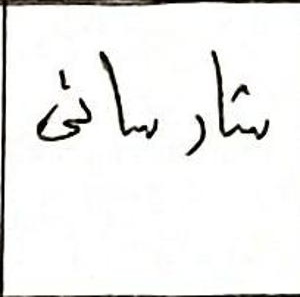 شار سانی